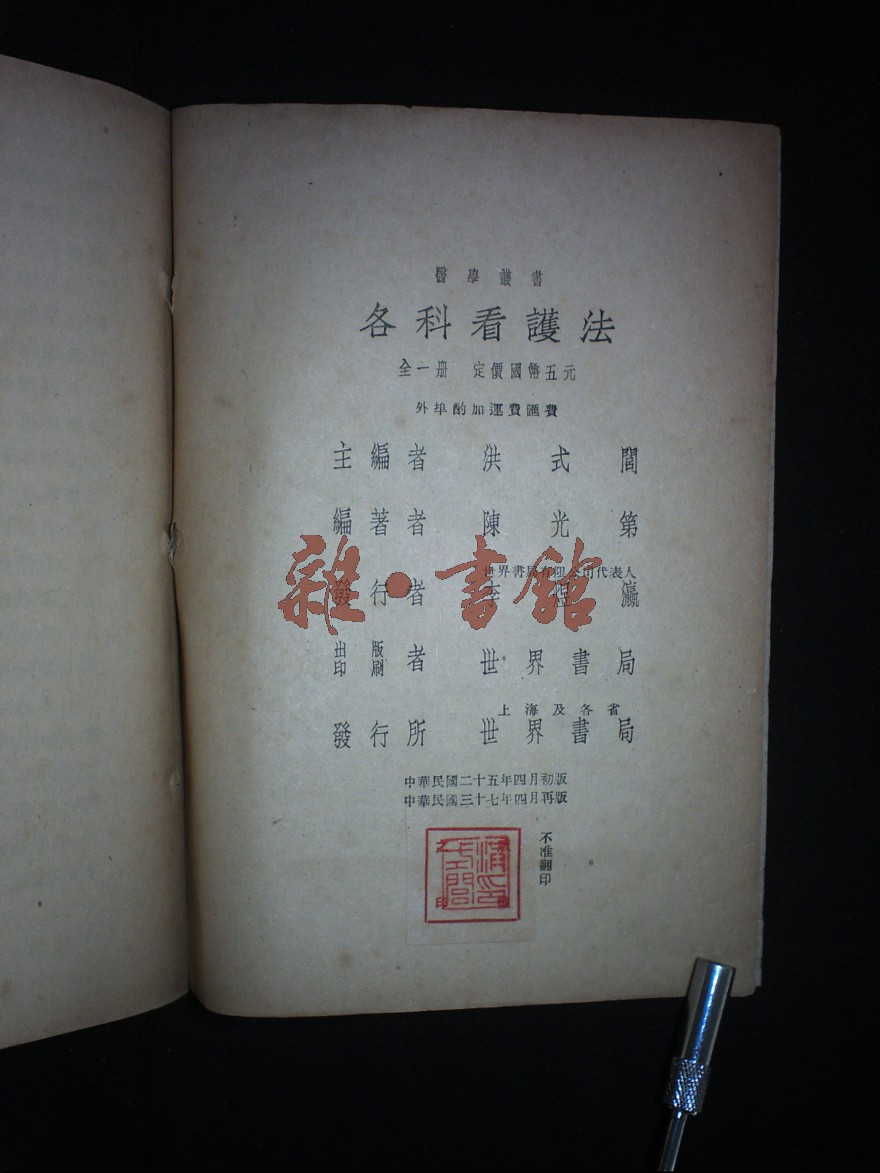 醫學叢書
各科看護法
全一册 定價國幣五元
外埠酌加運費匯費
主編者 洪式閭
編著者 陳光第
世界書局有限公司代表人
發行者 李煜瀛
出版
印刷者 世界書局
上海及各省
發行所 世界書局
中華民國二十五年四月初版
中華民國三十七年四月再版
不准翻印
雜·書館